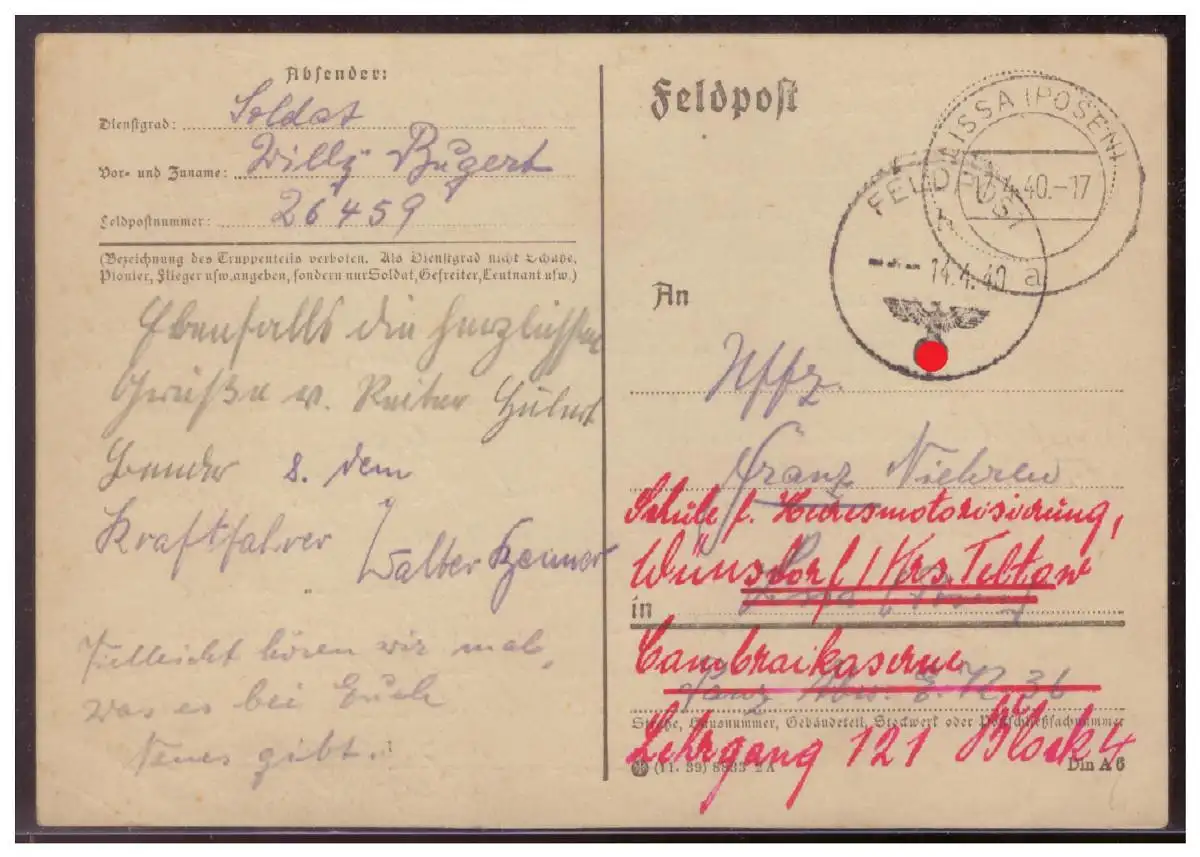 Absender:
Dienstgrad: Soldat
Vor- und Zuname: Willy Bugert
Feldpostnummer: 26459
(Bezeichnung des Truppenteils verboten. Als Dienstgrad nicht Schütze,
Pionier, Flieger usw. angeben, sondern nur Soldat, Gefreiter, Leutnant usw.)
Ebenfalls die herzlichsten
Grüße v. Reiter
8. dem
Kraftfahrer Walter
Vielleicht hören wir mal,
was es bei Euch
Neues gibt.
Feldpost
LISSA (POSEN)
4.40.-17
a
FELDPOST
14.4.40
An
Uffz.
Franz Niehren
Schule f. Heeresmotorisierung,
Wünsdorf / Krs. Teltow
Lissa (Posen)
in
Cambraikaserne
Panz. Abw. E. K. 36
Straße, Hausnummer, Gebäudeteil, Stockwerk oder Postschließfachnummer
Lehrgang 121 Block 4
(11. 39) 8833 2A
Din A 6